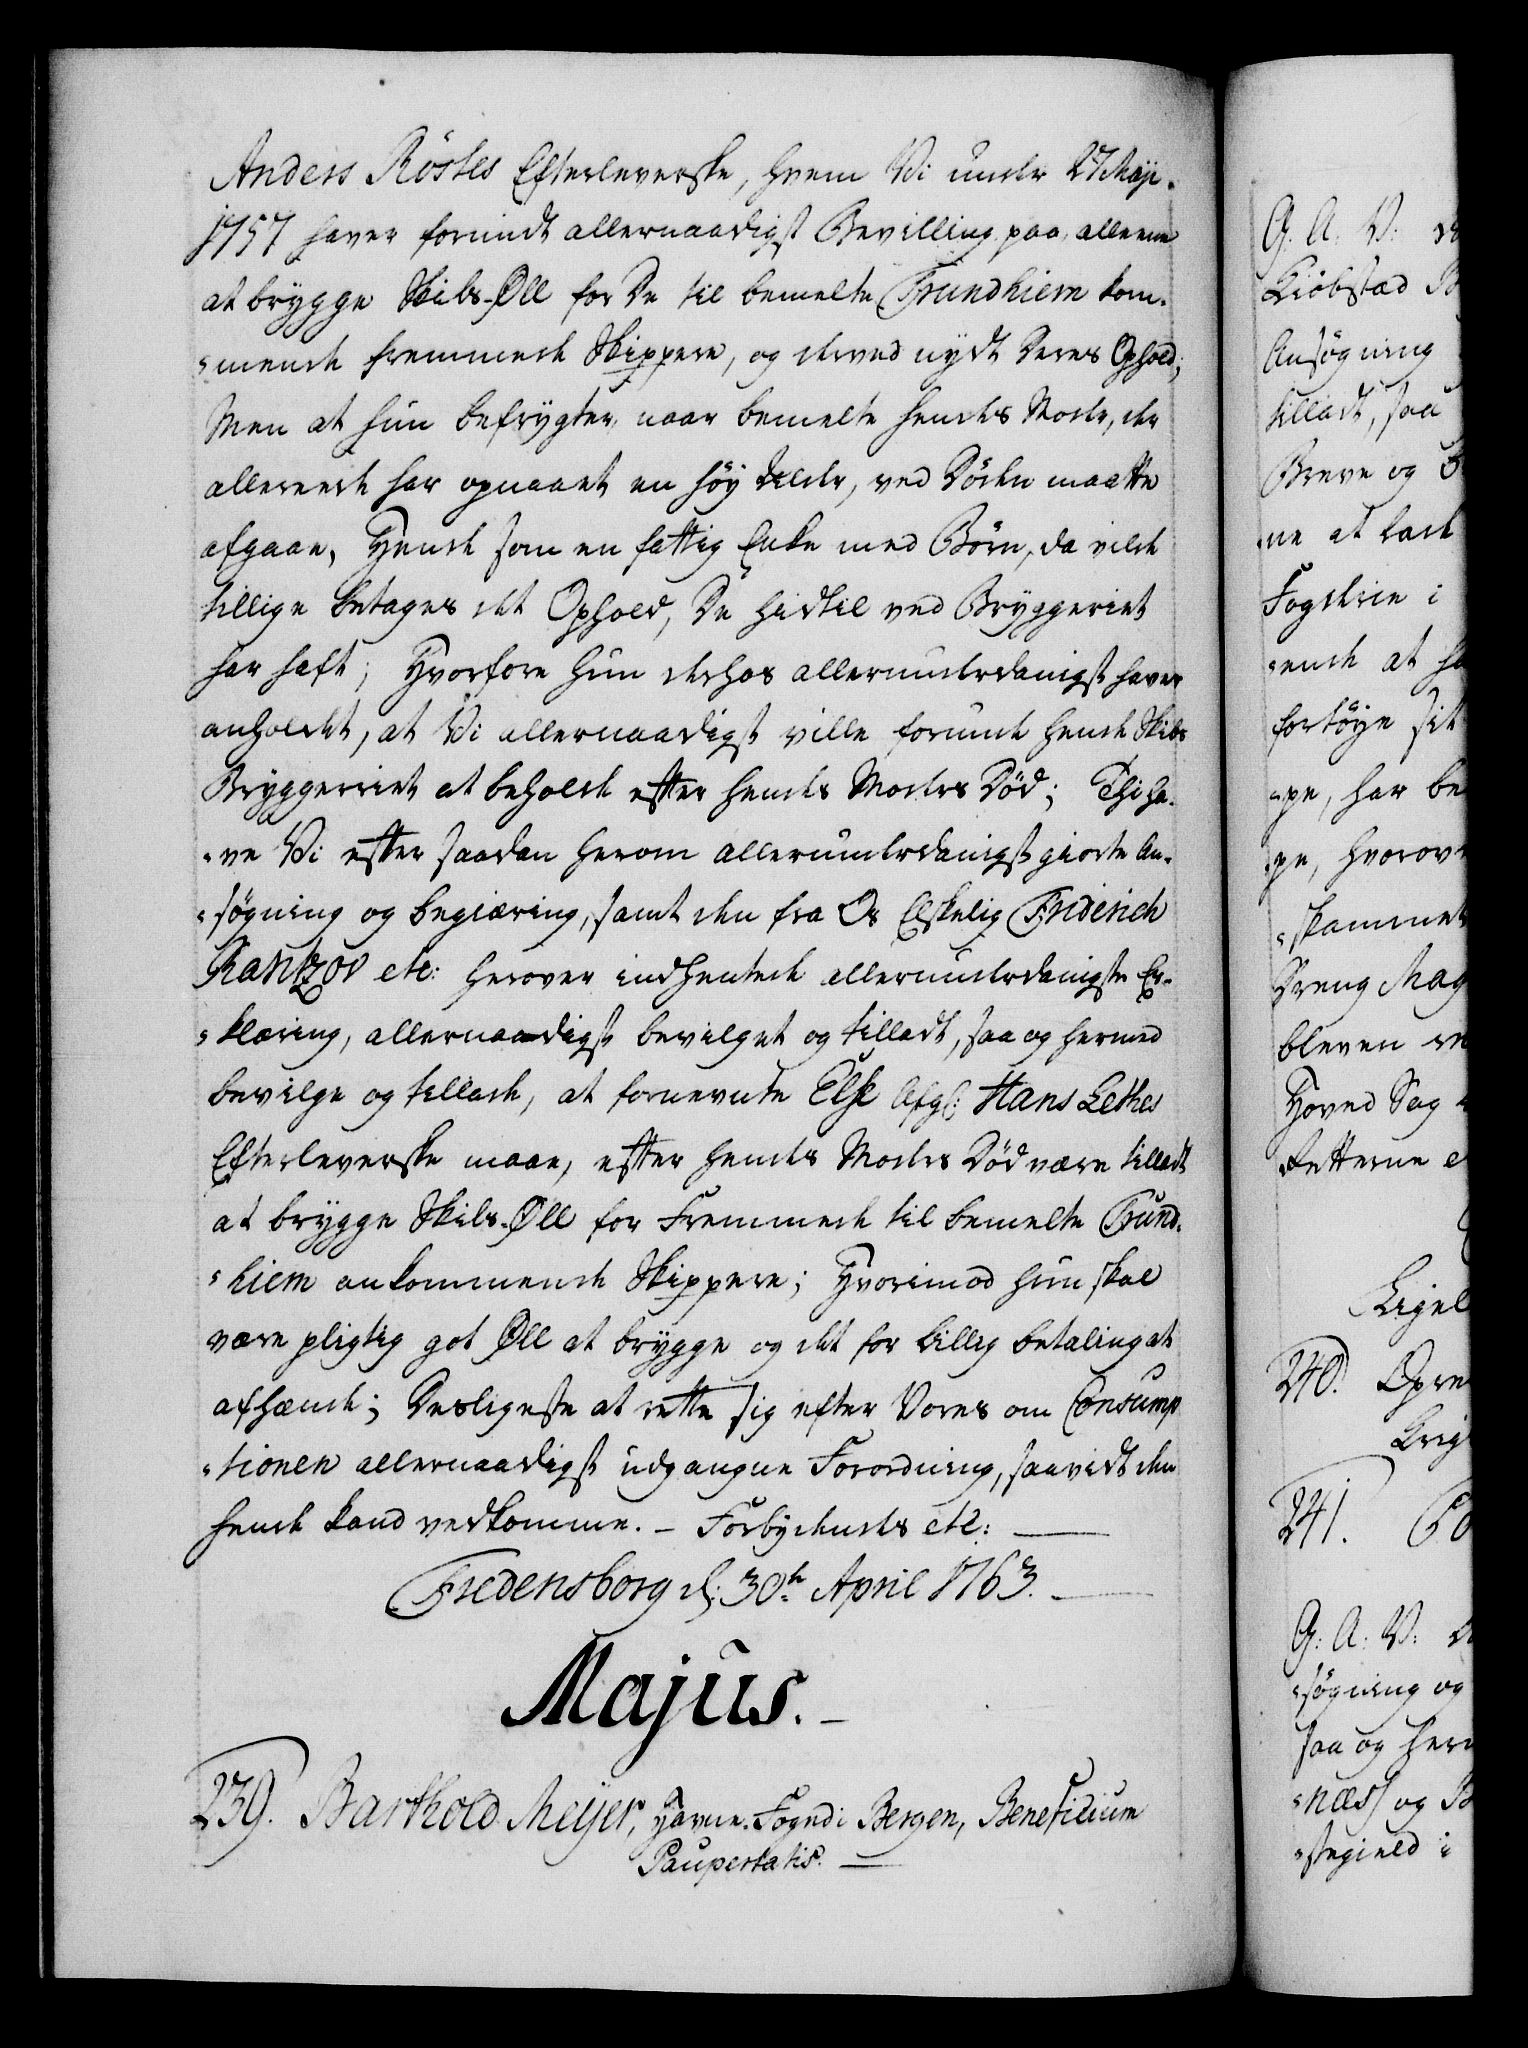 Anders Röstes Efterleverske, hvem Vi under 27 Maji
1757 haver forundt allernaadigst Bevilling paa, alleene
at brygge Skibs-Øll for De til bemelte Trundhiem kom-
mende fremmede Skippere, og derved nydt Deres Ophold;
Men at hun befrygter, naar bemelte hendes Moder, der
allereede har opnaaet en høy Alder, ved Døden maatte
afgaae, Hende som en fattig Enke med Børn, da vilde
tillige betages det Ophold, De hidtil ved Bryggeriet
har haft; Hvorfore hun derhos allerunderdanigst haver
anholdet, at Vi allernaadigst ville forunde hende Skibs
Bryggerriet at beholde efter hendes Moders Død; Thi ha-
ve Vi efter saadan herom allerunderdanigst giorte An-
søgning og begiæring, samt den fra Os Elskelig Friderich
Rantzov etc: herover indhentede allerunderdanigste Er-
klæring, allernaadigst bevilget og tilladt, saa og hermed
bevilge og tillade, at fornevnte Else Afg: Hans Lethes
Efterleverske maae, efter hendes Moders Død være tilladt
at brygge Skibs-Øll for Fremmede til bemelte Trund-
hiem ankommende Skippere; Hvorimod hun skal
være pligtig got Øll at brygge og det for billig betaling at
afhænde; Desligeste at rette sig efter Vores om Consump
tionen allernaadigst udgangne Forordning, saavidt den
hende kand vedkomme. - Forbydendes etc:
Fredensborg d: 30te April 1763.
Majus.
239. Barthold Meijer, Havne-Foged i Bergen, Beneficium
Paupertatis.
G. A. V:
Kiøbstæd
Ansøgning
tilladt, saa
Breve og
ne at lade
Fogderie i
ende at
fortøye sit
pe, har be
pe, hvorov
skammet
Dreng Mag
bleven
Hoved Sag
Retterne
Ligel
240. Opre
Krig
241. Co
G: A: V:
søgning og
saa og her
næs og
stegield i